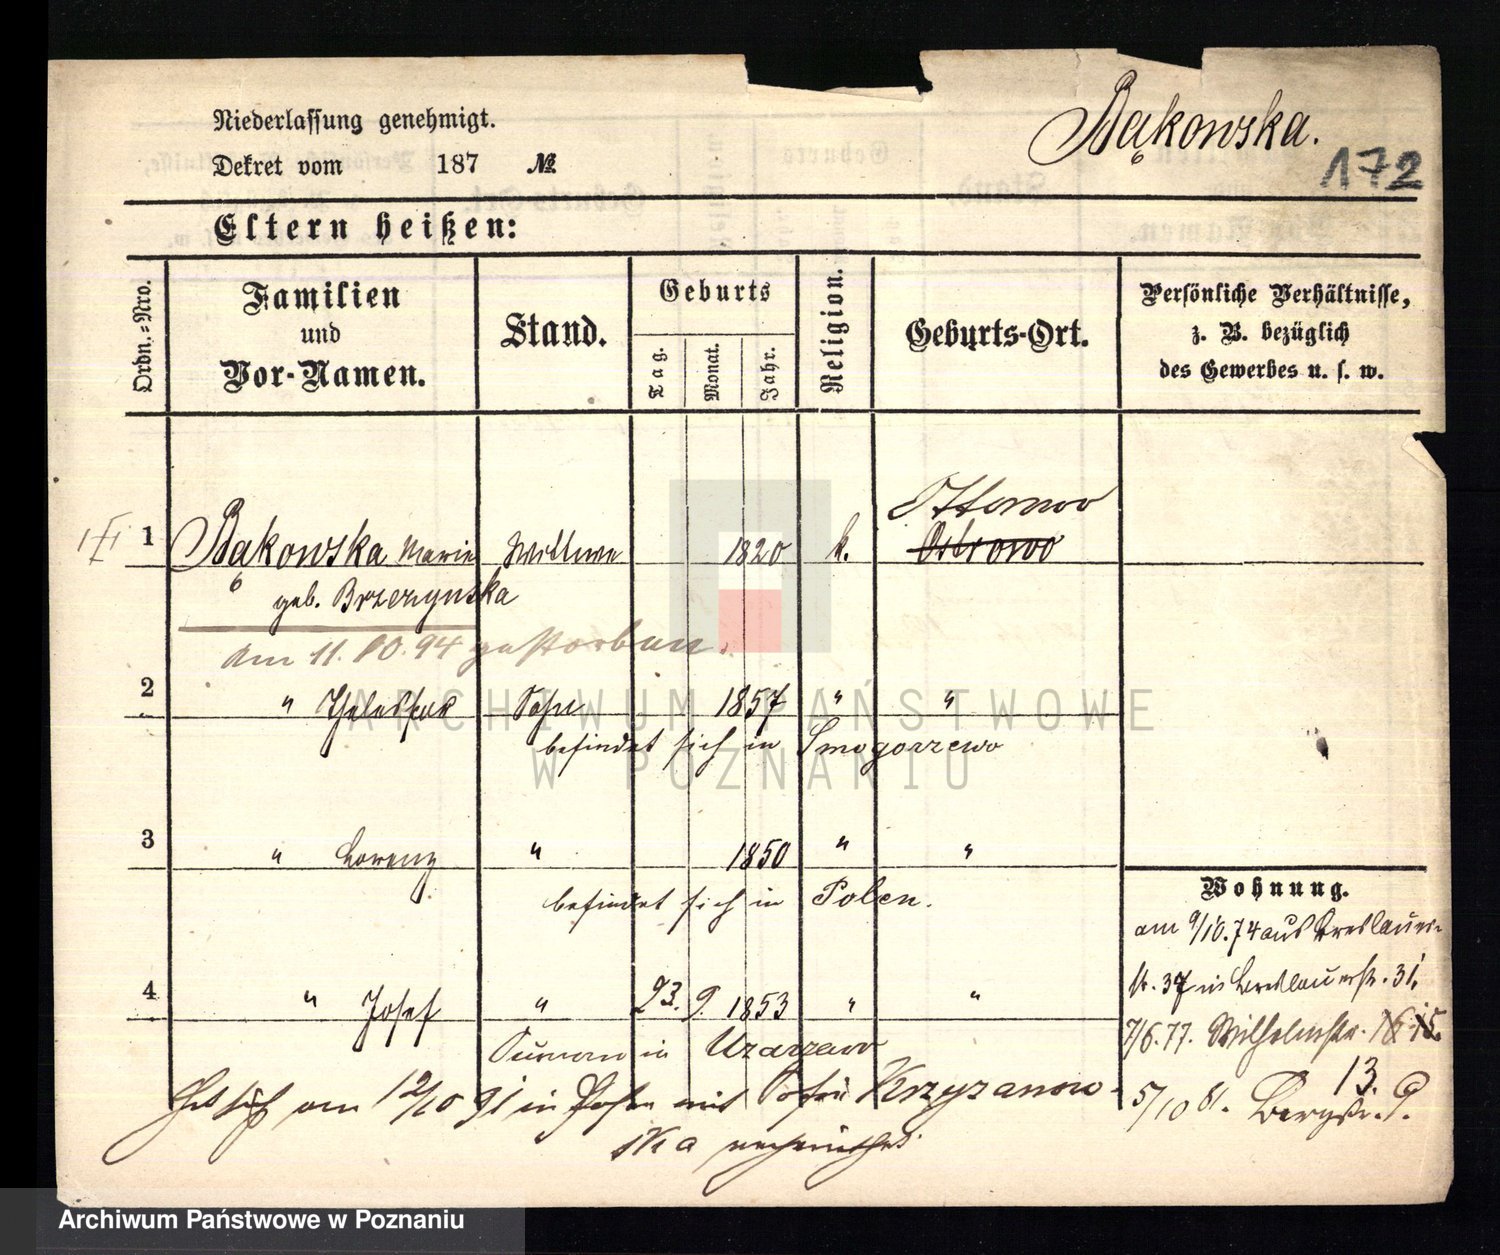 Niederlassung genehmigt.
Bąkowska.
Dekret vom 187 №
172
Eltern heißen:
Ordn.=Nro.
Familien
und
Vor-Namen.
Stand.
Geburts
Tag.
Monat.
Jahr.
Religion.
Geburts-Ort.
Persönliche Verhältnisse,
z. B. bezüglich
des Gewerbes u. s. w.
Ottorowo
1 Bąkowska Marie Wittwe 1820 k. Ostrowo
geb. Brzezynska
am 11.10.94 gestorben.
2 " Sohn 1857 " "
befindet sich in Smogorzewo
3 " Lorenz " 1850 " "
befindet sich in Polen.
4 " Josef " 23. 9. 1853 " "
in Uzarzewo
Hat sich am 12/10 91 in Posen mit Krzyzanow-
ska
Wohnung.
am 9/10.74 aus Breslauer-
st. 37 in Breslauerstr. 31.
7/6.77. Wilhelmstr. 16 15.
13.
5/10 81. Bergstr. 9.
ARCHIWUM PAŃSTWOWE
W POZNANIU
Archiwum Państwowe w Poznaniu